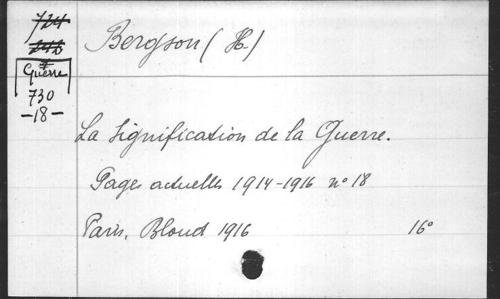 Bergson (H.)
Guerre
730
-18-
La Signification de la Guerre.
Pages actuelles 1914-1916 n° 18
Paris, Bloud 1916 16°